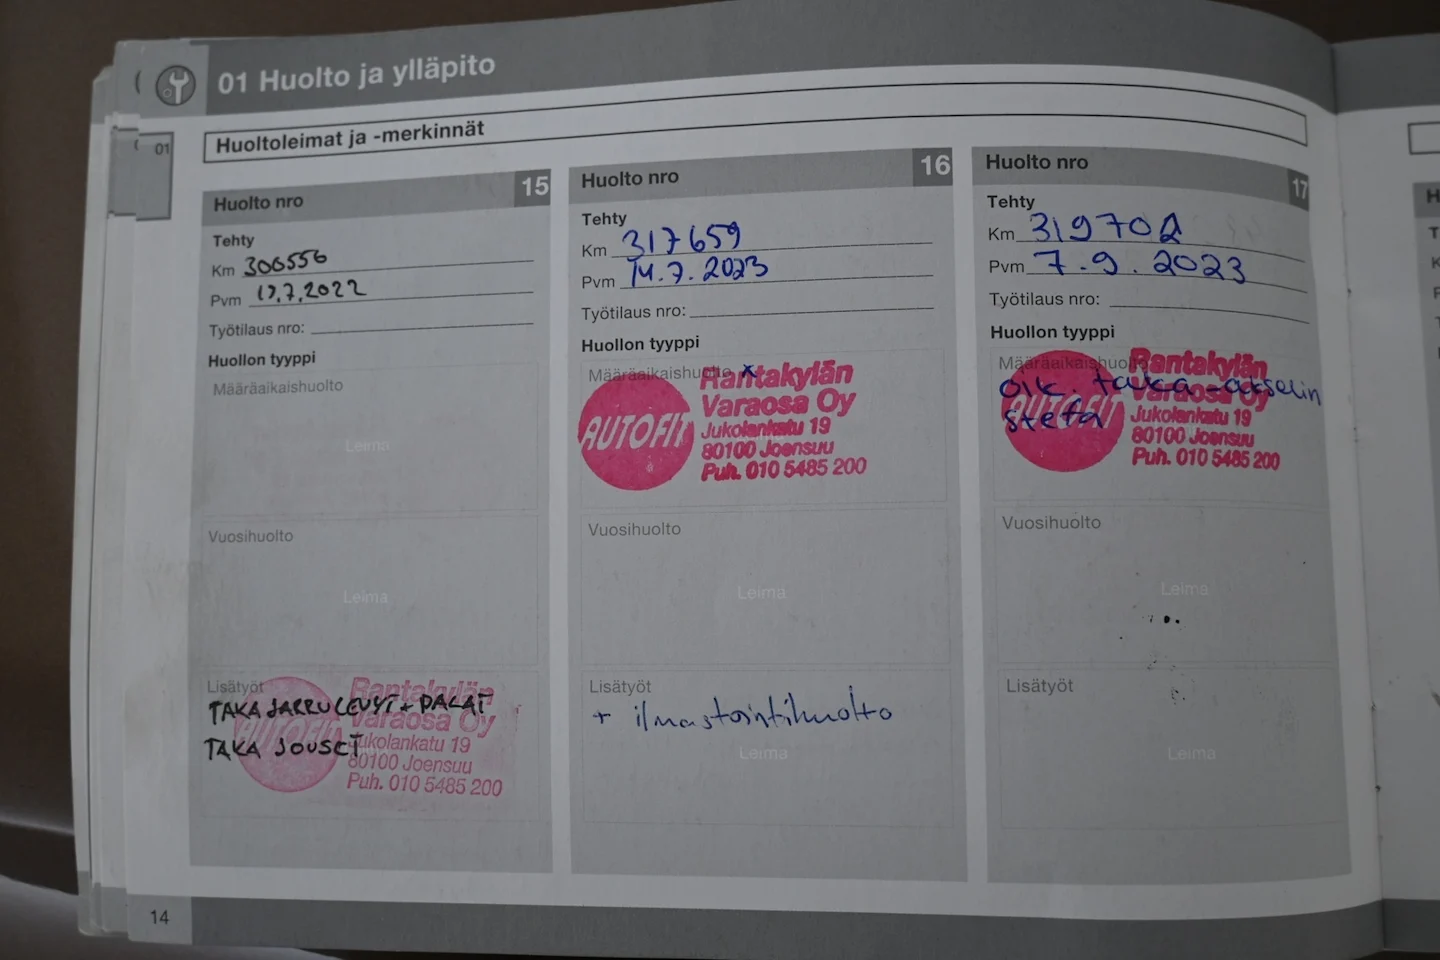 01 Huolto ja ylläpito
01
Huoltoleimat ja -merkinnät
Huolto nro 15
Tehty
Km 306556
Pvm 19.7.2022
Työtilaus nro:
Huollon tyyppi
Määräaikaishuolto
Leima
Vuosihuolto
Leima
Lisätyöt
TAKA JARRULEVYT + PALAT
TAKA JOUSET
AUTOFIT
Rantakylän
Varaosa Oy
Jukolankatu 19
80100 Joensuu
Puh. 010 5485 200
Huolto nro 16
Tehty
Km 317659
Pvm 14.7.2023
Työtilaus nro:
Huollon tyyppi
Määräaikaishuolto x
AUTOFIT
Rantakylän
Varaosa Oy
Jukolankatu 19
80100 Joensuu
Puh. 010 5485 200
Vuosihuolto
Leima
Lisätyöt
+ ilmastointihuolto
Leima
Huolto nro 17
Tehty
Km 319702
Pvm 7.9.2023
Työtilaus nro:
Huollon tyyppi
Määräaikaishuolto
oik. taka-akselin
AUTOFIT
Rantakylän
Varaosa Oy
Jukolankatu 19
80100 Joensuu
Puh. 010 5485 200
Vuosihuolto
Leima
Lisätyöt
Leima
14